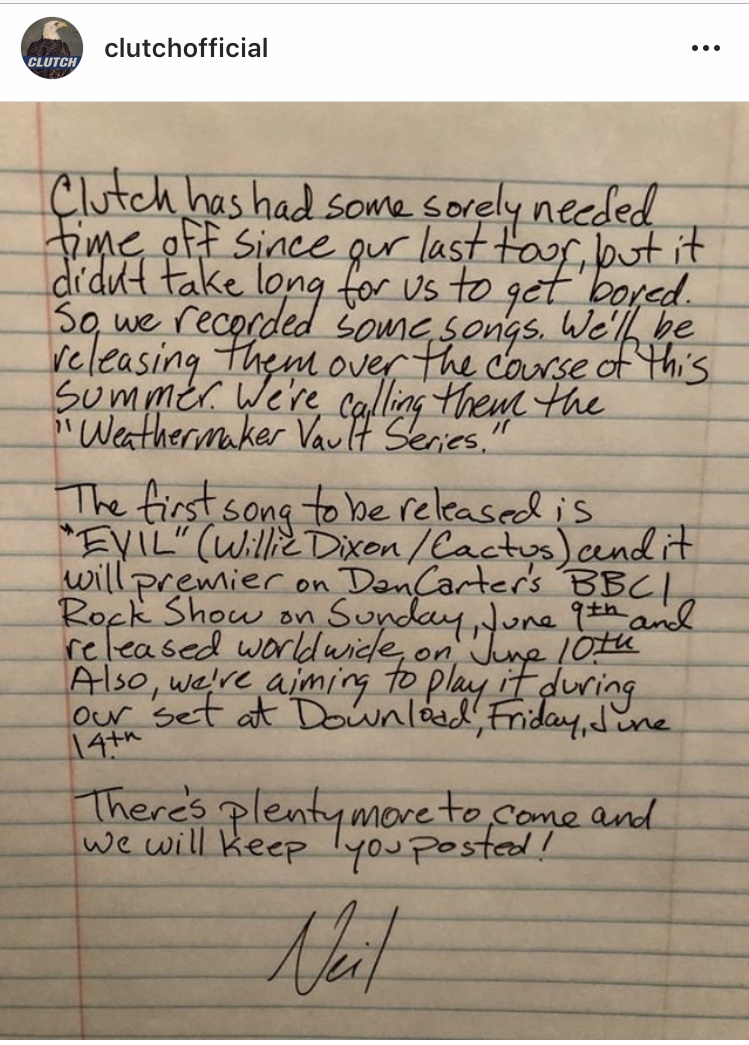 CLUTCH
clutchofficial
Clutch has had some sorely needed
time off since our last tour, but it
didn't take long for us to get bored.
So we recorded some songs. We'll be
releasing them over the course of this
summer. We're calling them the
"Weathermaker Vault Series."
The first song to be released is
"EVIL" (Willie Dixon/Cactus) and it
will premier on Dan Carter's BBC1
Rock Show on Sunday, June 9th and
released worldwide on June 10th
Also, we're aiming to play it during
our set at Download, Friday, June
14th
There's plenty more to come and
we will keep you posted!
Neil